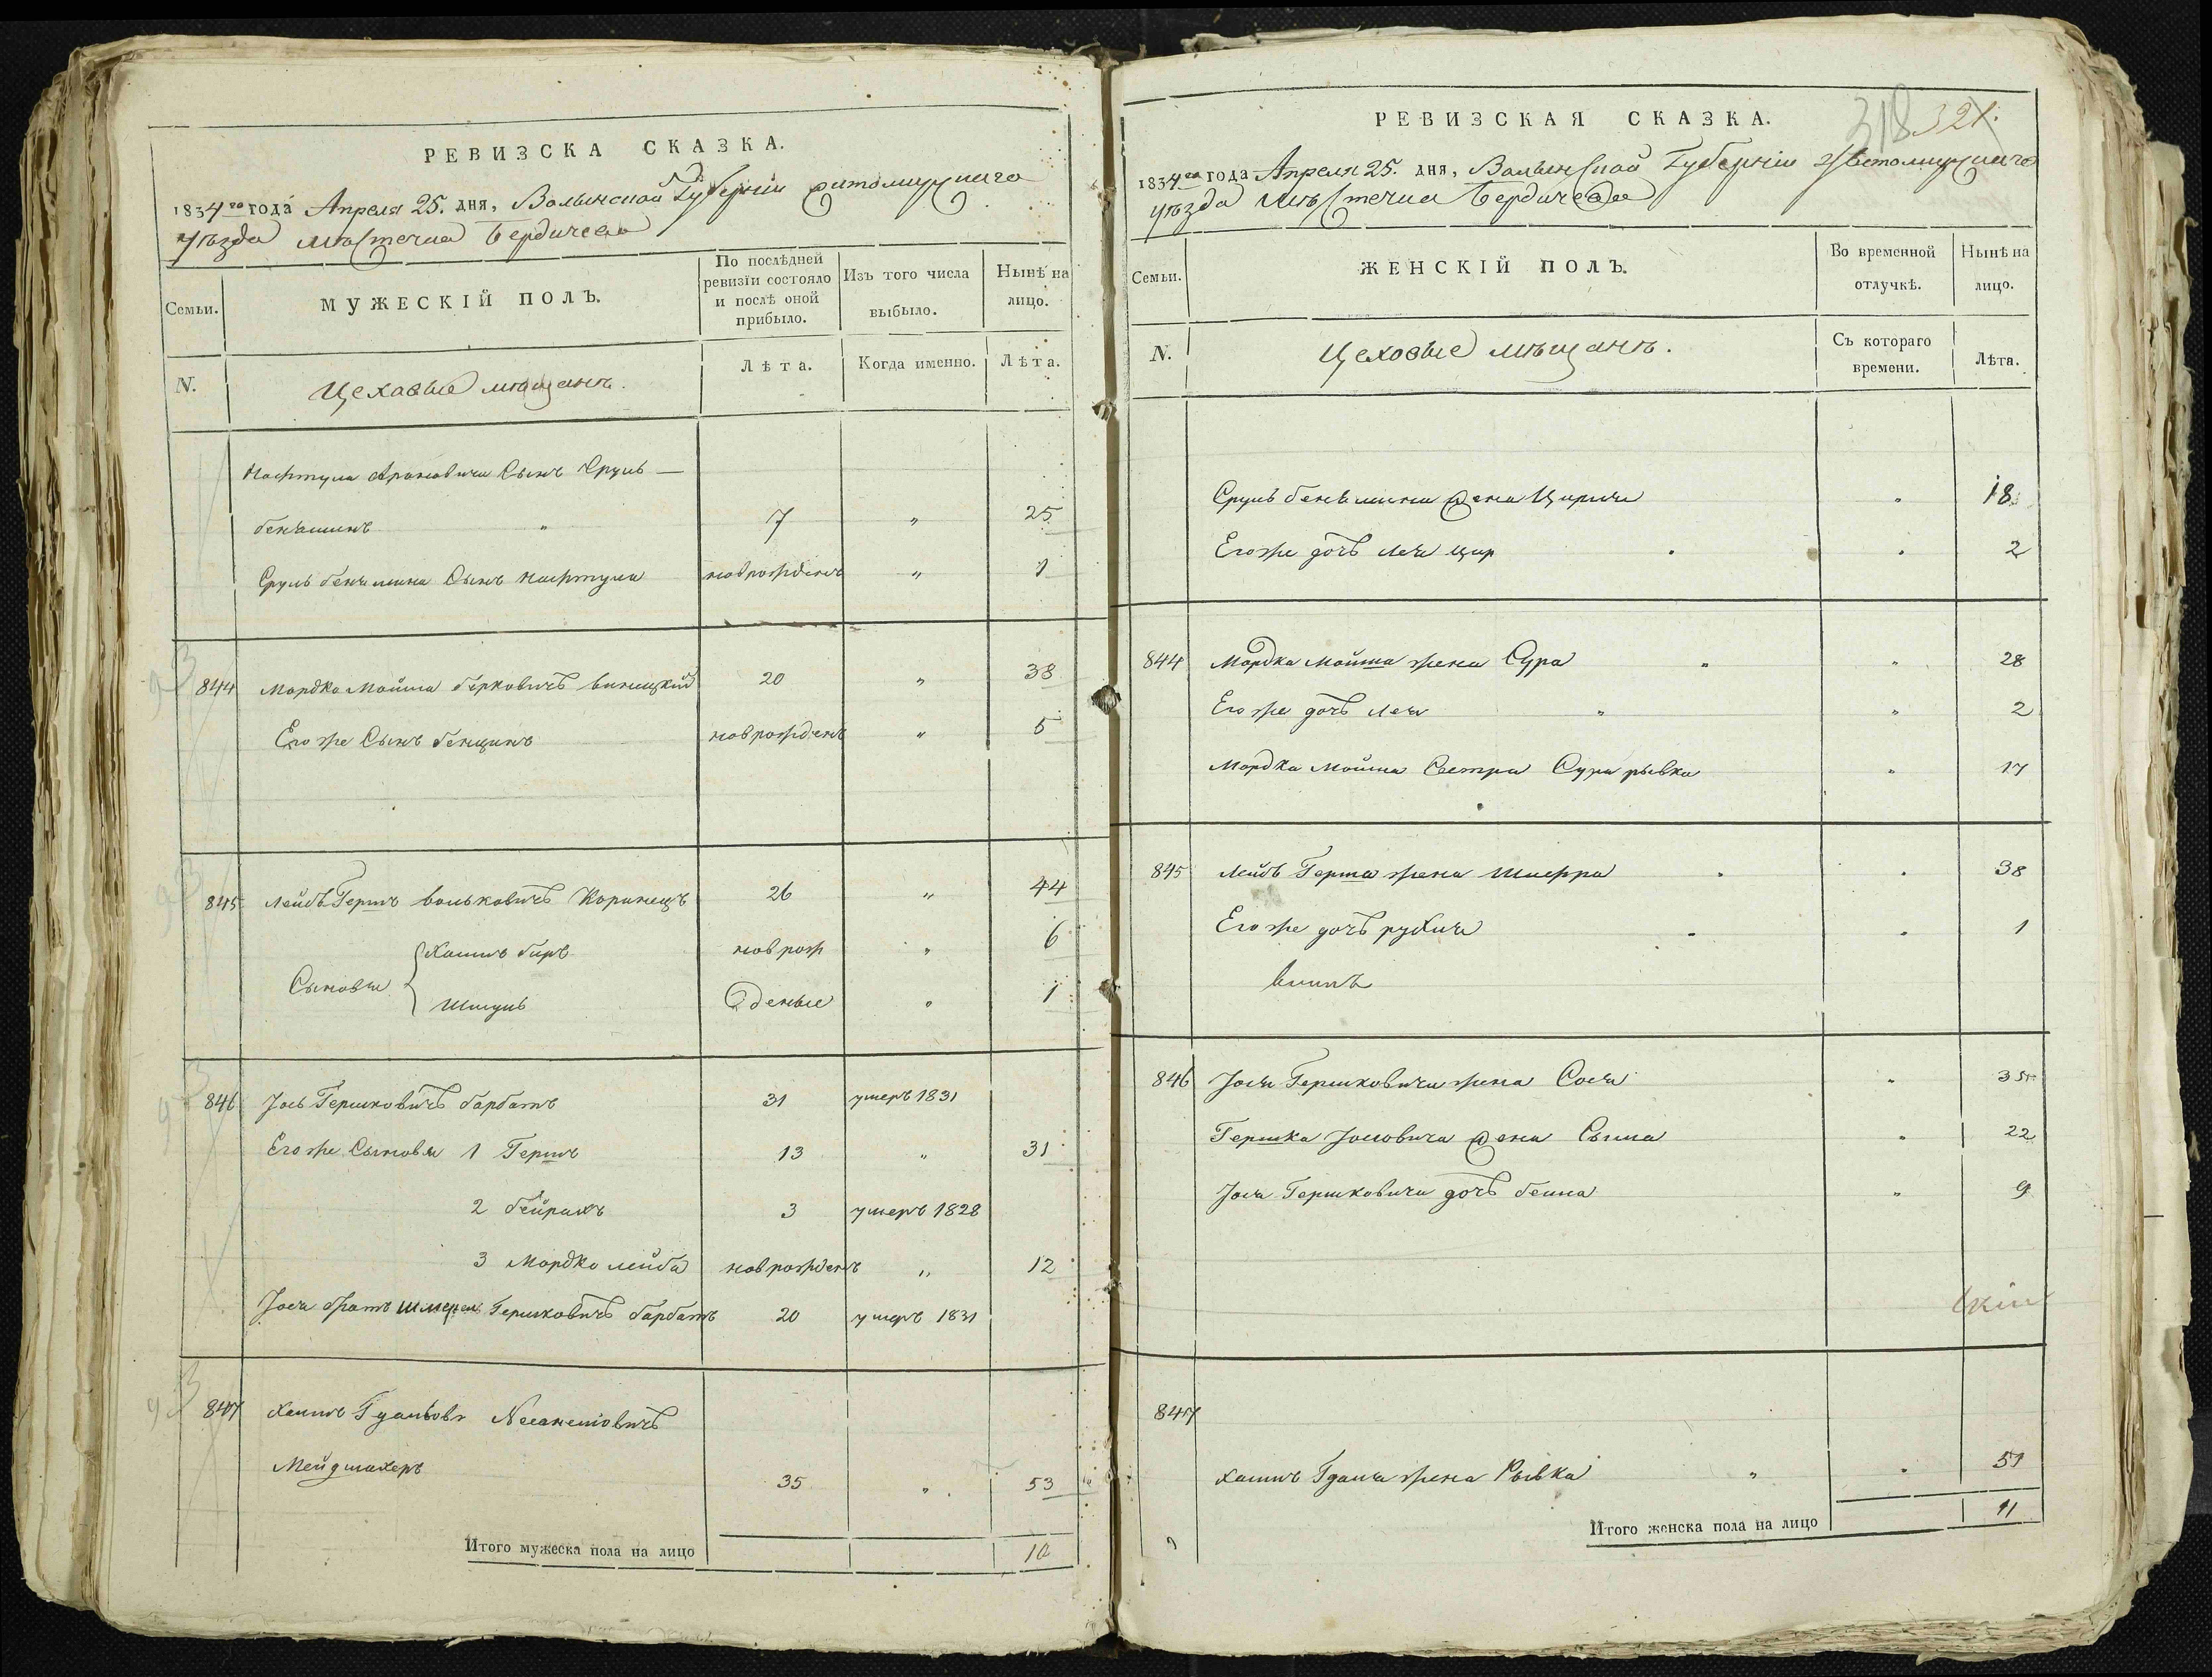 РЕВИЗСКА СКАЗКА.
1834го года Апреля 25. дня, Волынской Губерніи Житомирскаго
уѣзда мѣстечка Бердичева
Семьи.
МУЖЕСКІЙ ПОЛЪ.
По послѣдней ревизіи состояло и послѣ оной прибыло.
Изъ того числа выбыло.
Нынѣ на лицо.
N.
Цеховые мѣщанѣ.
Лѣта.
Когда именно.
Лѣта.
Нафтула Ароновича Сынъ Сруль —
бенѣминъ " 7 " 25
Сруль бенѣмина Сынъ Нафтула новрожденъ " 1
844 Мордко Мойша берковичъ виницкій 20 " 38
Его же Сынъ бенцинъ новрожденъ " 5
845 Лейбъ Гершъ вольковичъ Коринецъ 26 " 44
Хаимъ биръ новрож " 6
Сыновья
Шмуль деные " 1
846 Іось Гершковичъ барбатъ 31 умеръ 1831
Его же Сыновья 1 Гершъ 13 " 31
2 бейрахъ 3 умеръ 1828
3 Мордко лейба новрожденъ " 12
Іося братъ Шмерель Гершковичъ барбатъ 20 умеръ 1831
847 Хаимъ
Мейдмахеръ
35 " 53
Итого мужеска пола на лицо 10
РЕВИЗСКАЯ СКАЗКА.
318 321.
1834го года Апреля 25. дня, Волынской Губерніи Житомирскаго
уѣзда мѣстечка Бердичева
Семьи.
ЖЕНСКІЙ ПОЛЪ.
Во временной отлучкѣ.
Нынѣ на лицо.
N.
Цеховые мѣщанѣ.
Съ котораго времени.
Лѣта.
Сруль бенѣмина жена Цирля " 18
Его же дочъ Лея " 2
844 Мордка Мойша жена Сура " " 28
Его же дочъ Лея " " 2
Мордка Мойша Сестра Сура рывка " 17
845 Лейбъ Герша жена Шифра " " 38
Его же дочъ рухля " " 1
846 Іося Гершковича жена Сося " 35
Гершка Іосіовича жена Сима " 22
Іося Гершковича дочъ бейла " 9
847
Хаимъ Гдаля жена Рывка " " 51
Итого женска пола на лицо 11